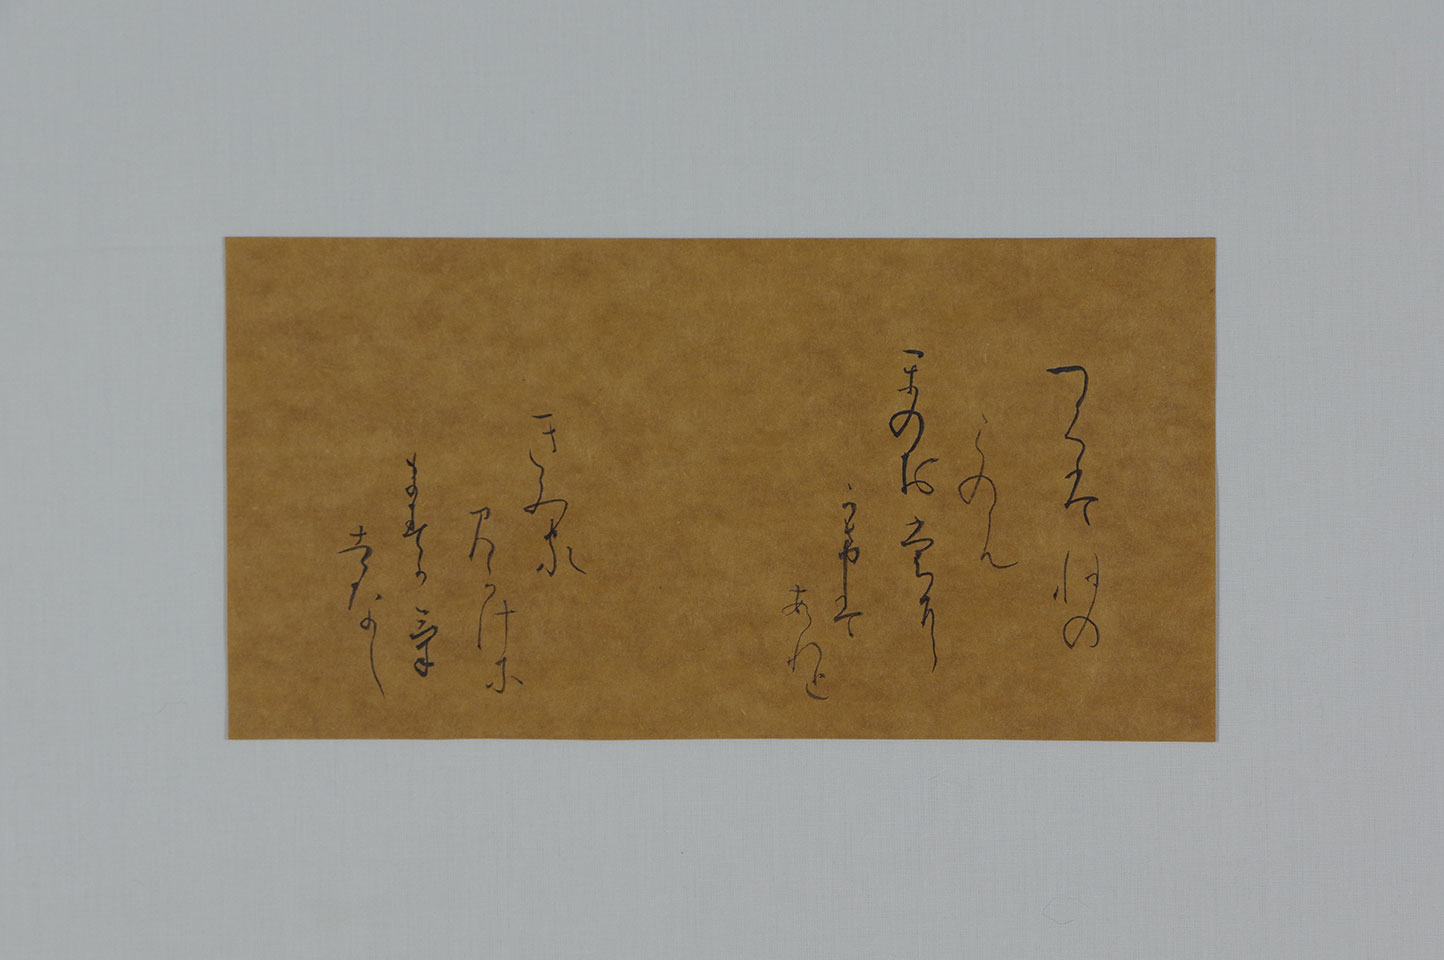 つくはねの
このも
かのもに
かけは
あれと
きみか
見かけに
ますかけ
はなし